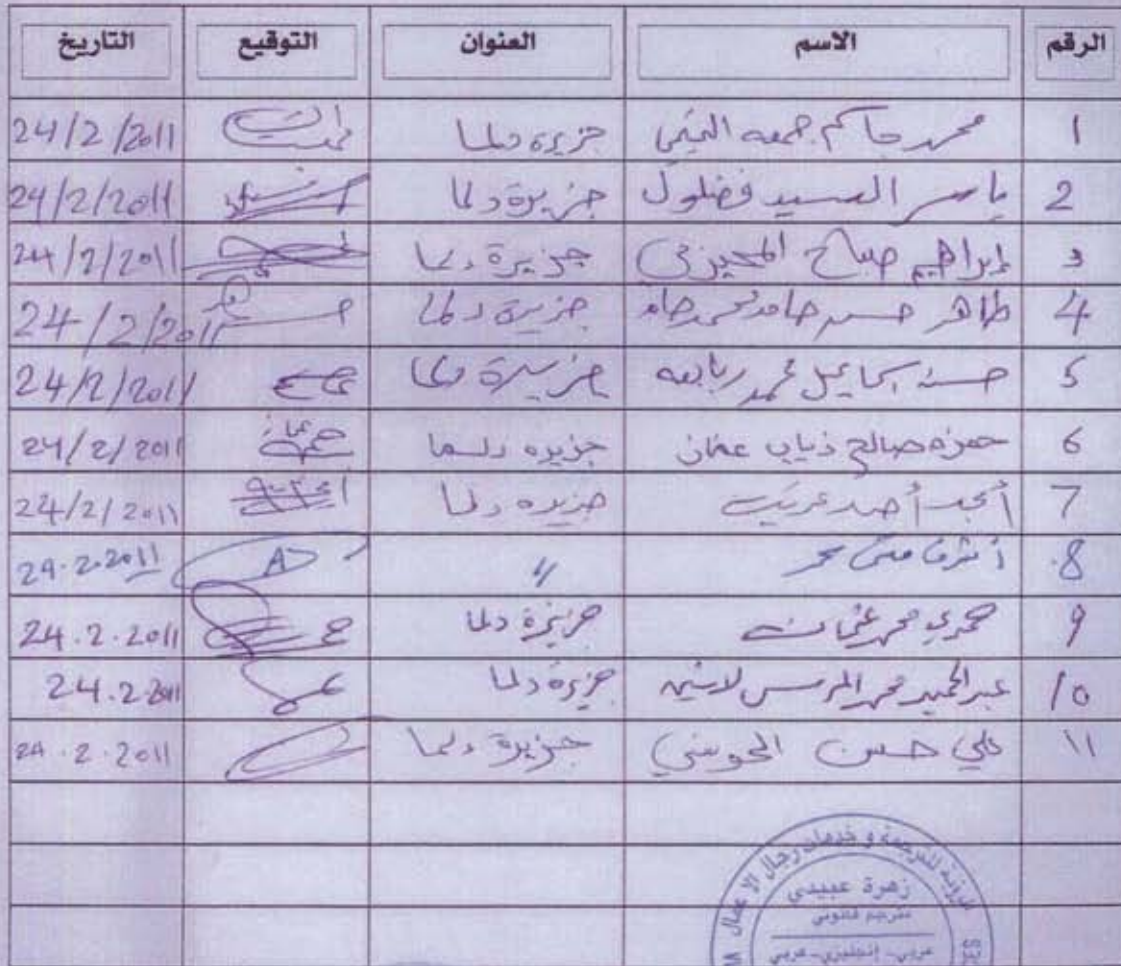 الرقم الاسم العنوان التوقيع التاريخ
1 محمد جاكم جمعه جزيره دلما 24/2/2011
2 ياسر السيد فضلول جزيرة دلما 24/2/2011
3 إبراهيم صباح المحيربي جزيرة دلما 24/2/2011
4 طاهر حسن حامد محمد حامد جزيرة دلما 24/2/2011
5 حسن اسماعيل محمد ربابعه جزيرة دلما 24/2/2011
6 حمزه صالح ذياب عثمان جزيره دلما 24/2/2011
7 أمجد أحمد غريب جزيره دلما 24/2/2011
8. أشرف 〃 24.2.2011
9 حمدي محمد عثمان جزيرة دلما 24.2.2011
10 عبدالحميد محمد جزيرة دلما 24.2.2011
11 علي حسن الحوسني جزيرة دلما 24.2.2011
للترجمة و خدمات رجال الاعمال
زهرة عبيدي
مترجم قانوني
عربي-إنجليزي-عربي